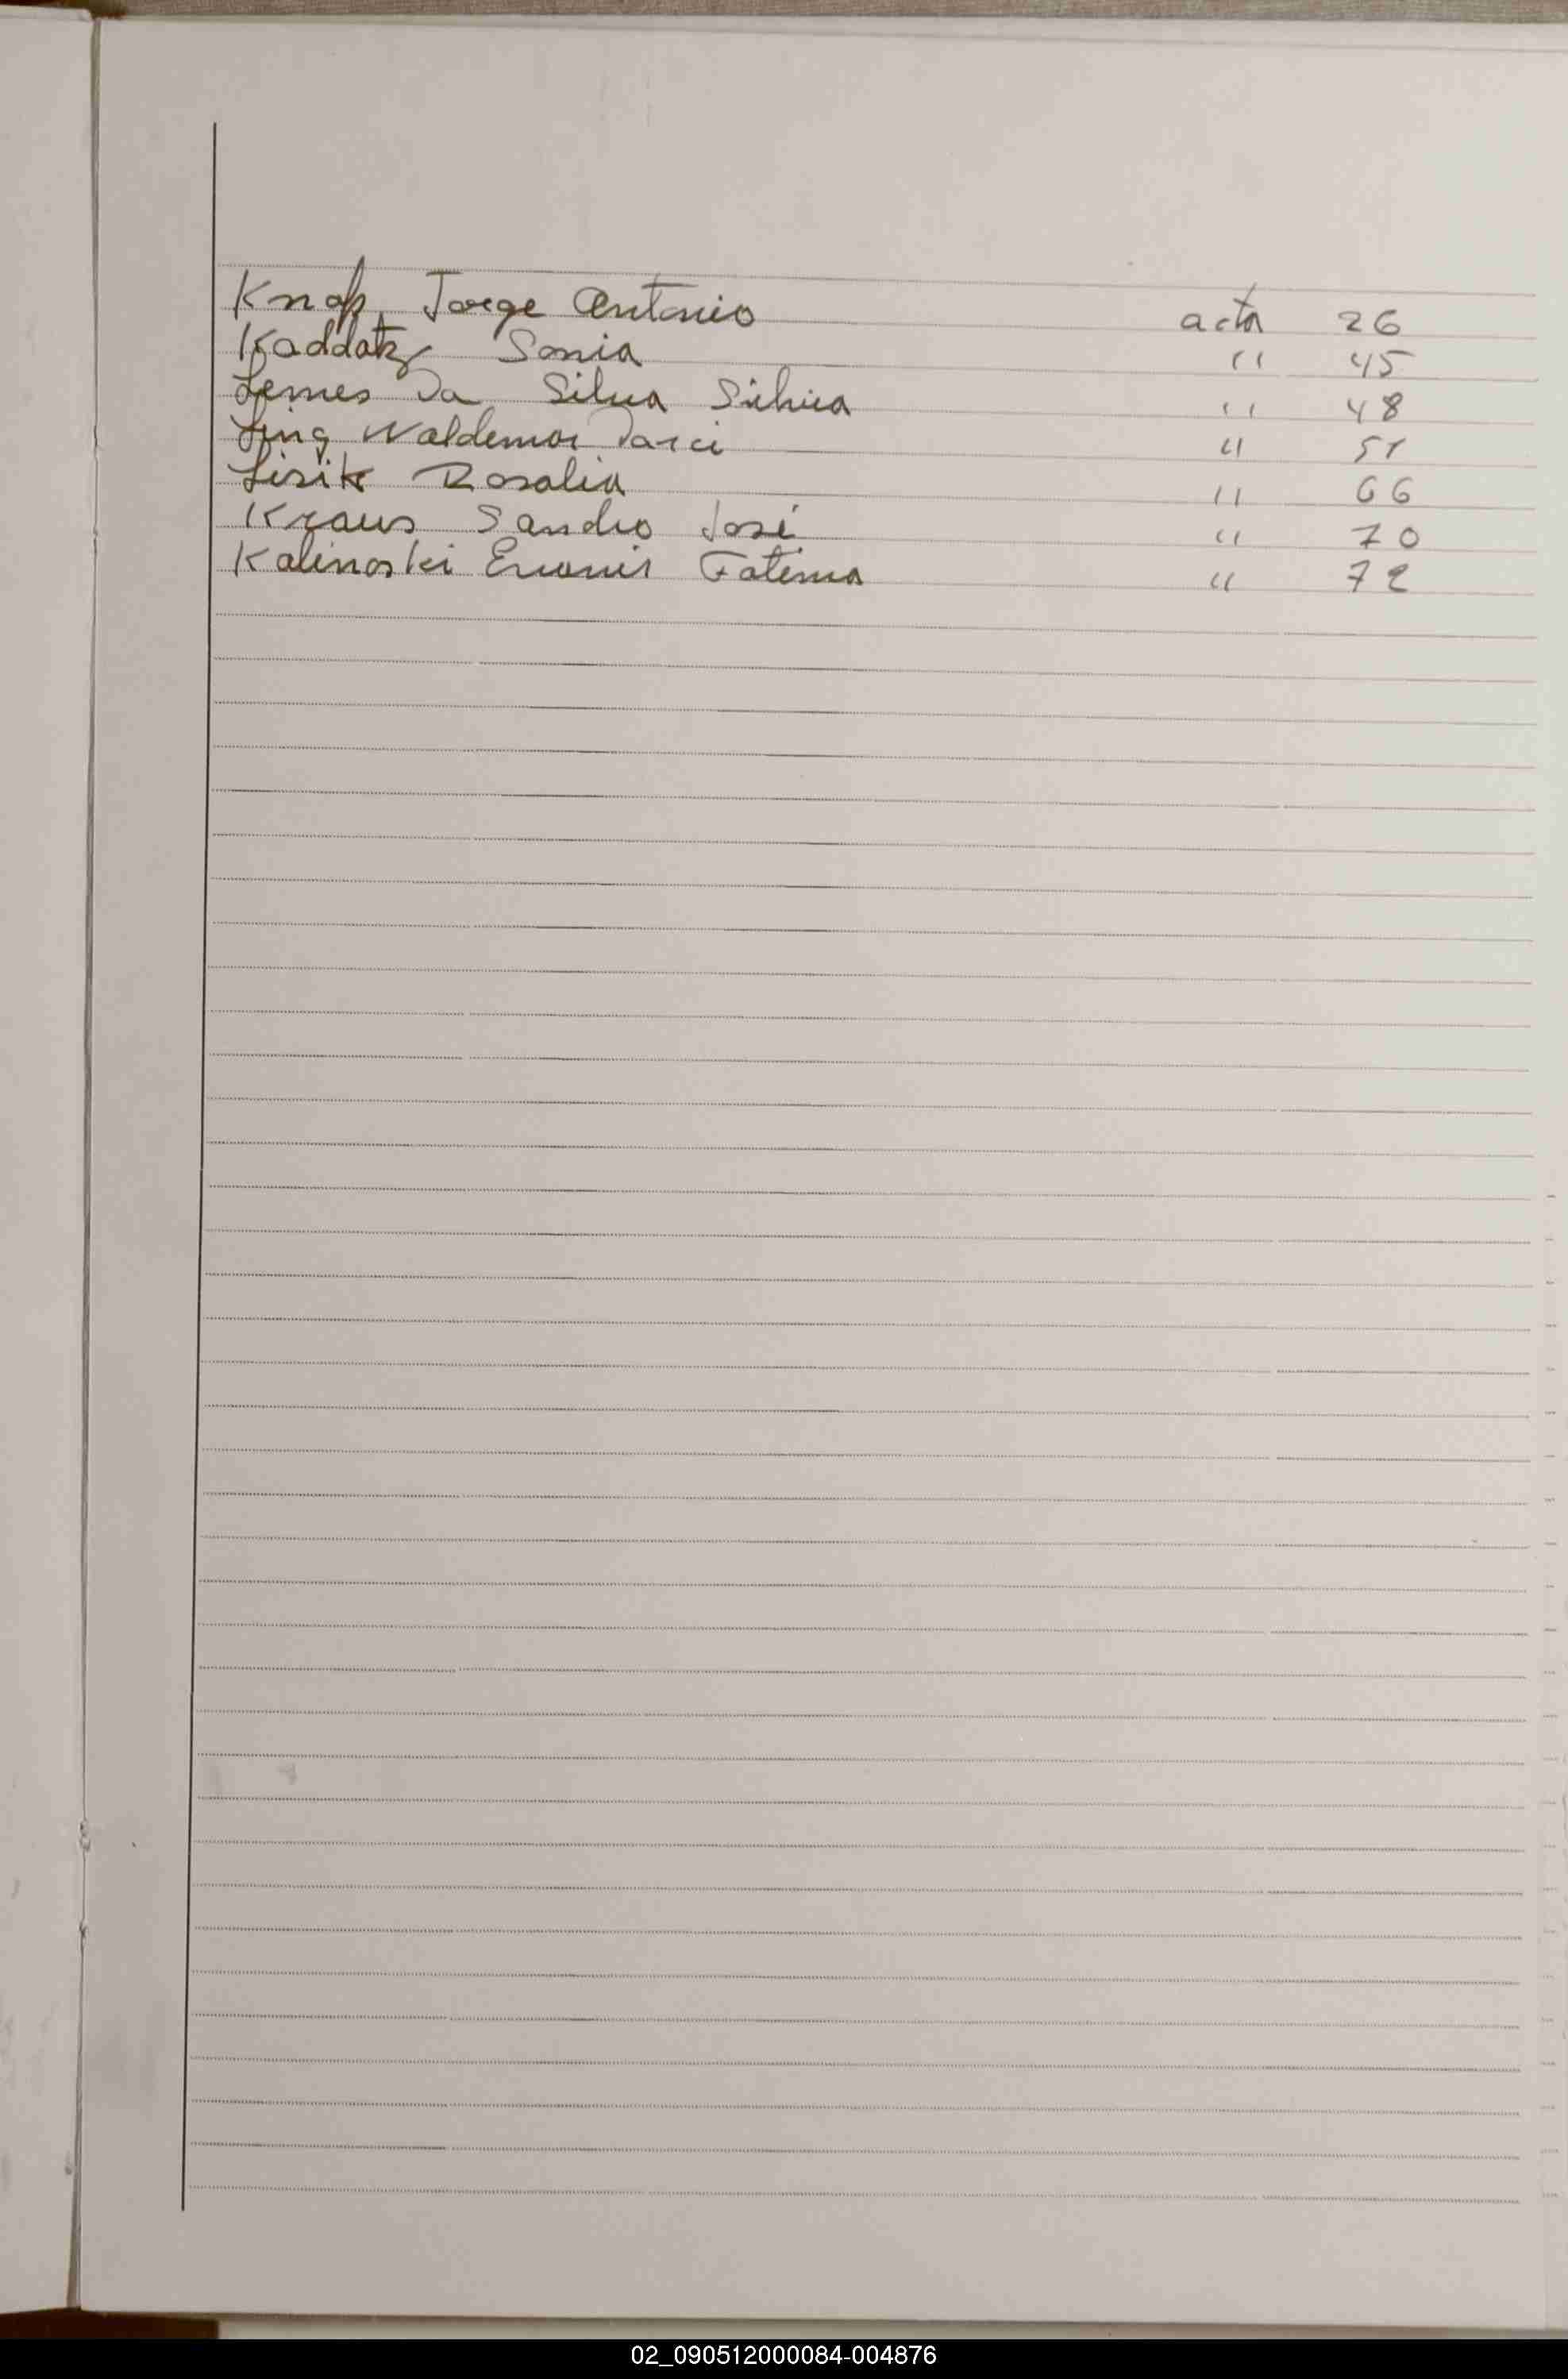 Knap, Jorge Antonio acta 26
Kaddatz Sonia " 45
Lemes Da Silva Silvia " 48
Ling Waldemar Darci " 51
Lisik Rosalia " 66
Kraus Sandro José " 70
Kalinoski Fatima " 72
02_090512000084-004876